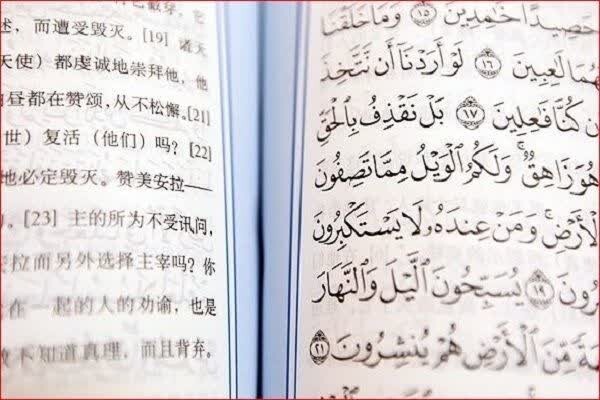 述，而遭受毁灭。[19] 诸天
天使）都虔诚地崇拜他，他
昼都在赞颂，从不松懈。[21]
世）复活（他们）吗？[22]
地必定毁灭。赞美安拉——
）。[23] 主的所为不受讯问，
拉而另外选择主宰吗？你
在一起的人的劝谕，也是
不知道真理，而且背弃。
حَصِيدًا خَٰمِدِينَ ١٥ وَمَا خَلَقْنَا
لَٰعِبِينَ ١٦ لَوْ أَرَدْنَآ أَن نَّتَّخِذَ
كُنَّا فَٰعِلِينَ ١٧ بَلْ نَقْذِفُ بِٱلْحَقِّ
هُوَ زَاهِقٌ ۚ وَلَكُمُ ٱلْوَيْلُ مِمَّا تَصِفُونَ
ٱلْأَرْضِ ۚ وَمَنْ عِندَهُۥ لَا يَسْتَكْبِرُونَ
١٩ يُسَبِّحُونَ ٱلَّيْلَ وَٱلنَّهَارَ
مِّنَ ٱلْأَرْضِ هُمْ يُنشِرُونَ ٢١